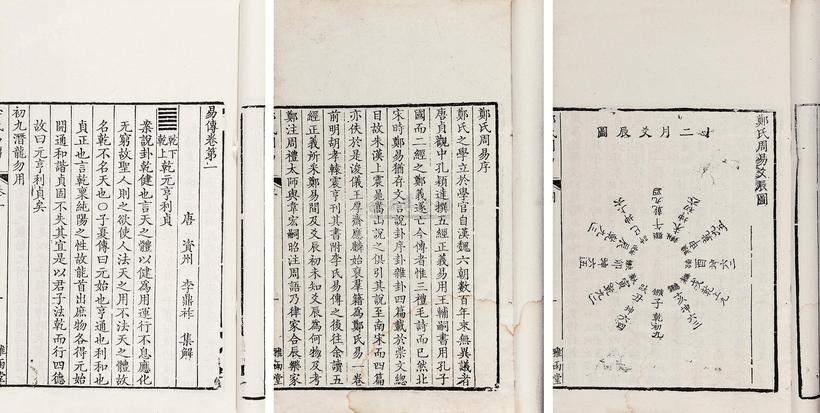 易傳卷第一
唐 資州 李鼎祚 集解
乾下
乾上
乾元亨利貞
案說卦乾健也言天之體以健為用運行不息應化
无窮故聖人則之欲使人法天之用不法天之體故
名乾不名天也○子夏傳曰元始也亨通也利和也
貞正也言乾稟純陽之性故能首出庶物各得元始
開通和諧貞固不失其宜是以君子法乾而行四德
故曰元亨利貞矣
初九潛龍勿用
雅雨堂
鄭氏周易序
鄭氏之學立於學官自漢魏六朝數百年來無異議者
唐貞觀中孔穎達撰五經正義易用王輔嗣書用孔子
國而二經之鄭義遂亡今傳者惟三禮毛詩而已然北
宋時鄭易猶存文言說卦序卦雜卦四篇載於崇文總
目故朱漢上震晁嵩山說之俱引其說至南宋而四篇
亦佚於是浚儀王厚齋應麟始裒羣籍為鄭氏易一卷
前明胡孝轅震亨刊其書附李氏易傳之後往余讀五
經正義所采鄭易間及爻辰初未知爻辰為何物及考
鄭注周禮太師與韋宏嗣昭注周語乃律家合辰樂家
雅雨堂
鄭氏周易爻辰圖
十二月爻辰圖
午乾九四
酉坤六二
子乾初九
卯坤六五
雅雨堂